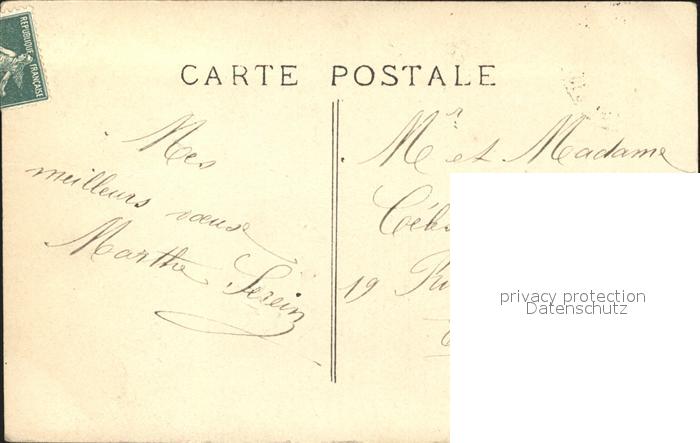 REPUBLIQUE FRANÇAISE
CARTE POSTALE
Mes
meilleurs vœux
Marthe Serein
Mr et Madame
19
privacy protection
Datenschutz